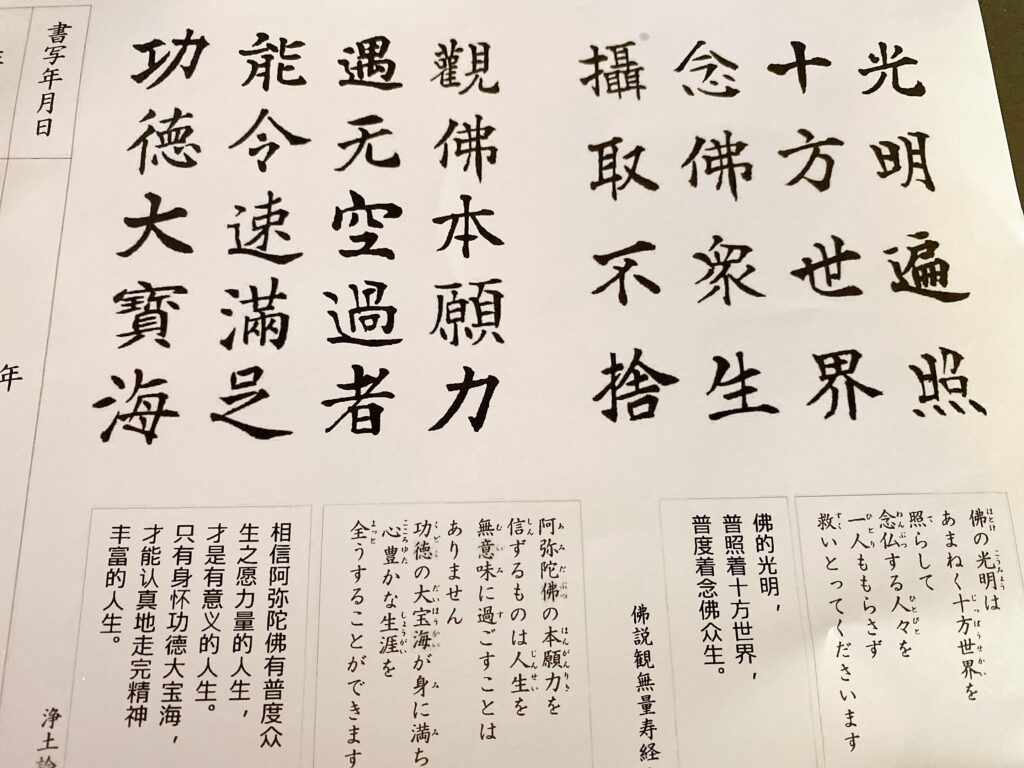 光明遍照
十方世界
念佛衆生
攝取不捨
觀佛本願力
遇无空過者
能令速滿足
功德大寶海
書写年月日
年
佛の光明は
あまねく十方世界を
照らして
念仏する人々を
一人ももらさず
救いとってくださいます
佛的光明，
普照着十方世界，
普度着念佛众生。
佛説観無量寿経
阿弥陀佛の本願力を
信ずるものは人生を
無意味に過ごすことは
ありません
功徳の大宝海が身に満ち
心豊かな生涯を
全うすることができます
相信阿弥陀佛有普度众
生之愿力量的人生，
才是有意义的人生。
只有身怀功德大宝海，
才能认真地走完精神
丰富的人生。
浄土論